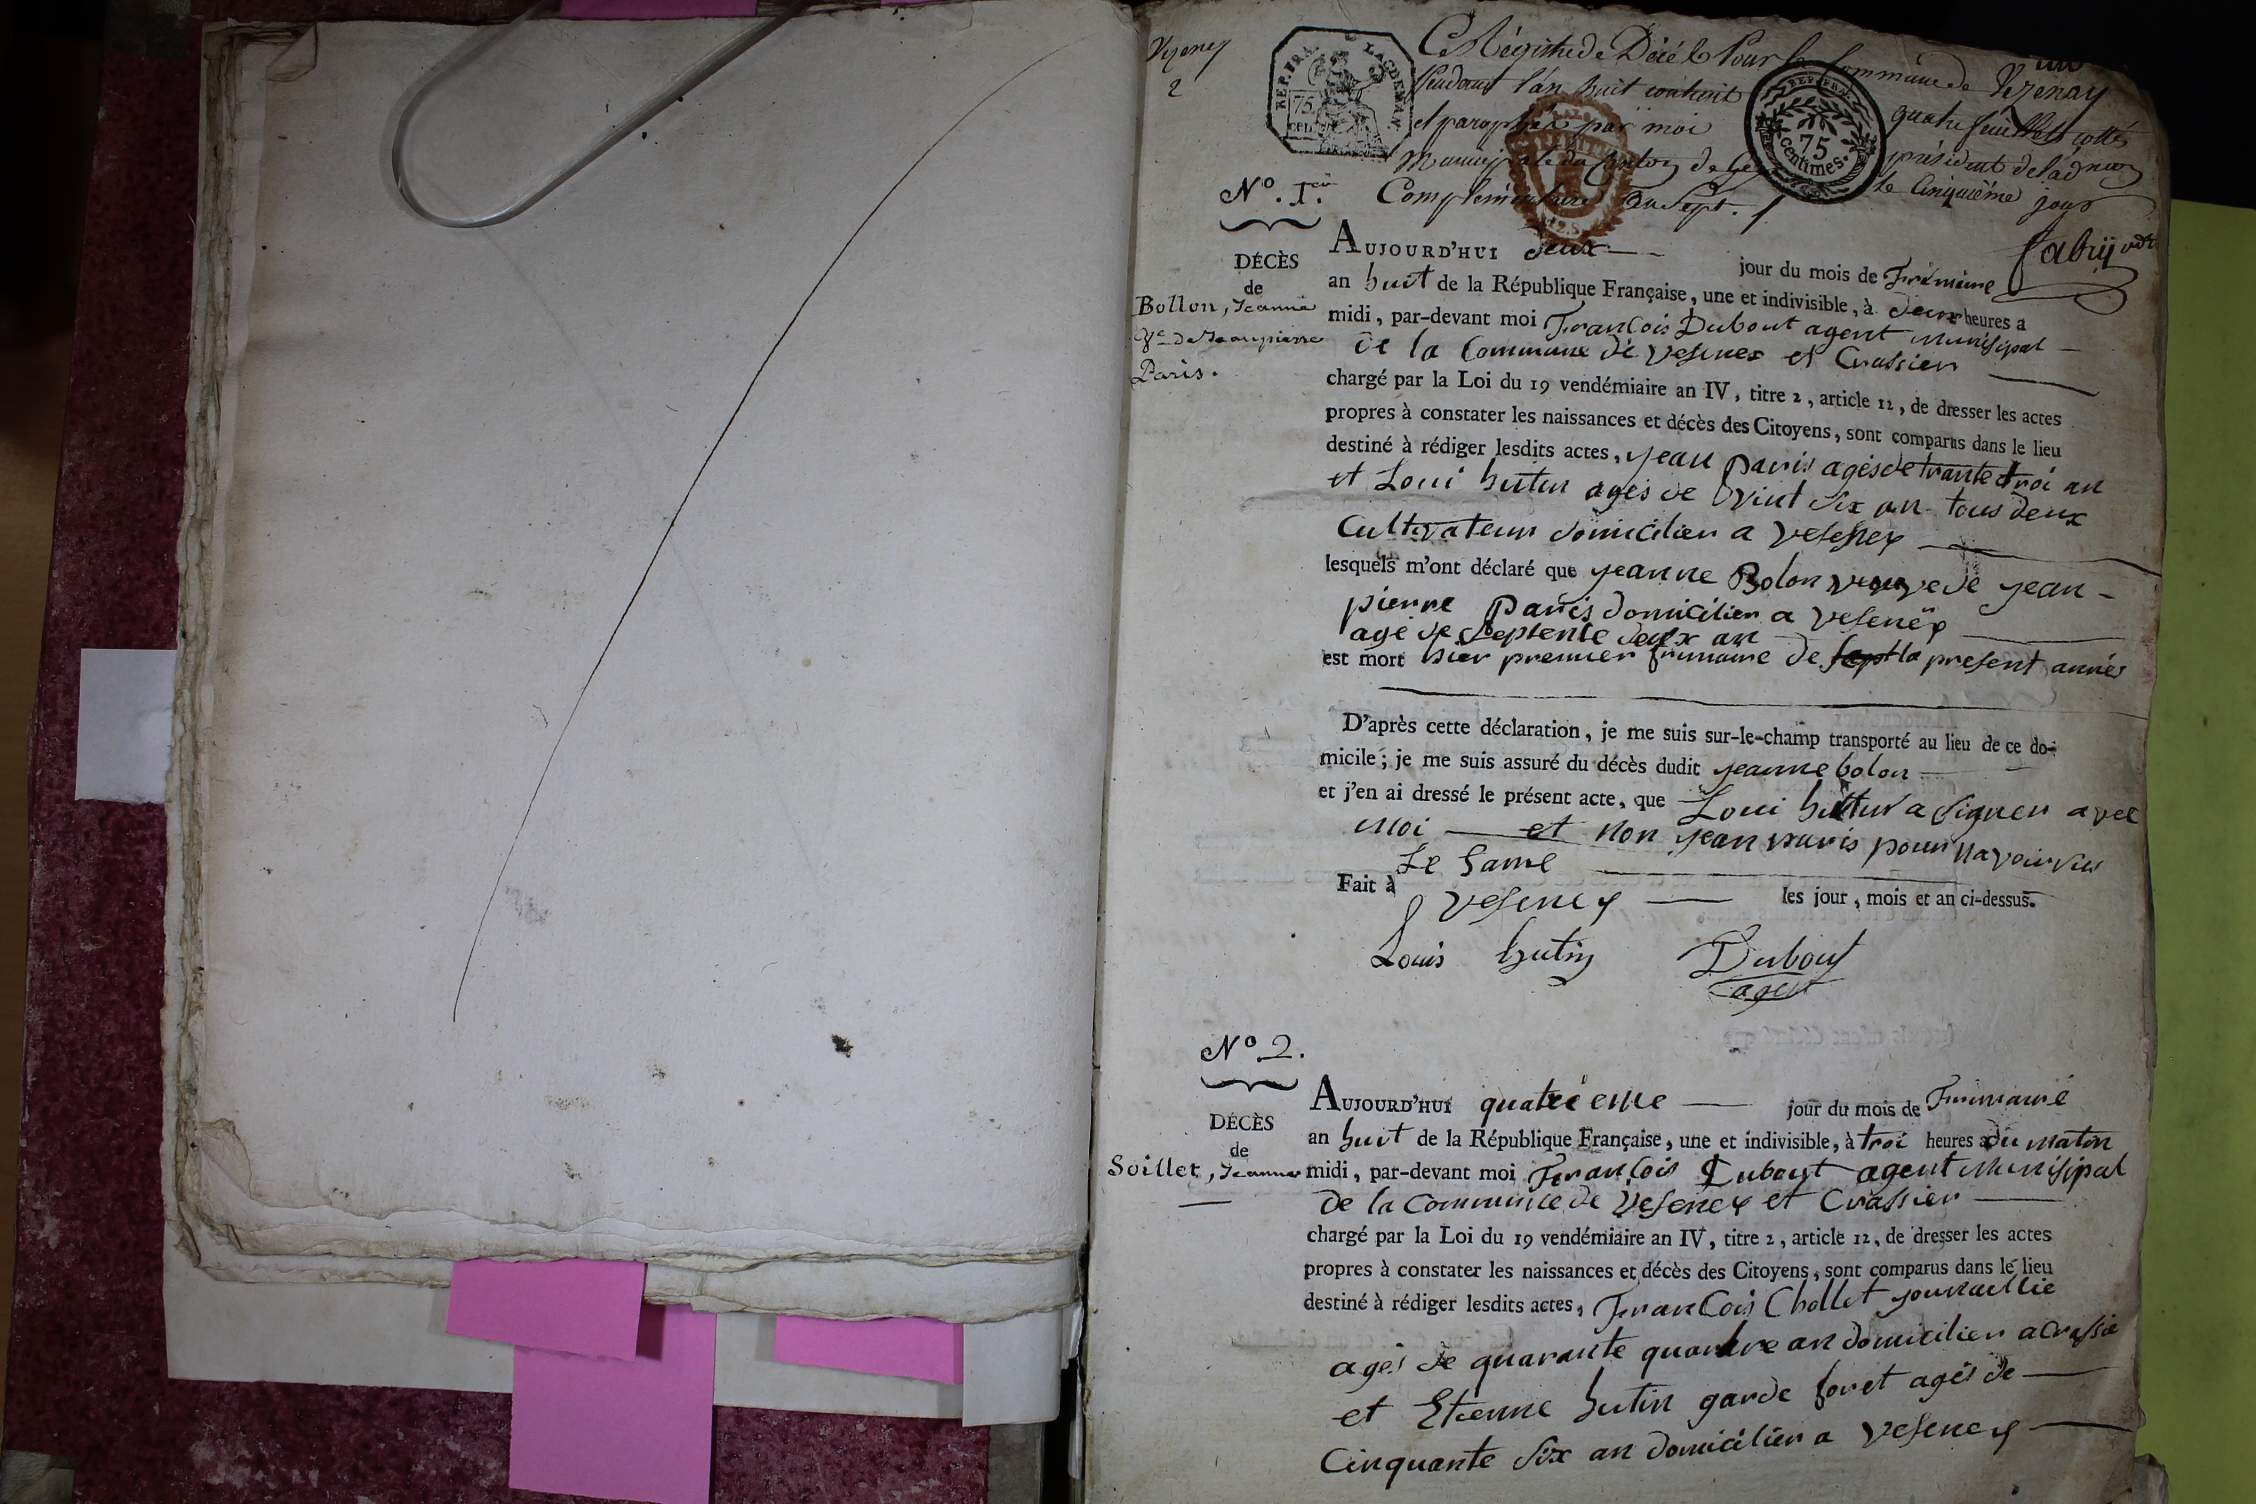 Vezeney
2
REP. FRA.
75
CEN.
Ce Régistre de Décé Pour la Commune de Vezenay
Pendant l'an huit contient quatre feuillets cottés
et paraphés par moi président de l'adm.on
Municipale du Canton de Gex le Cinquième jour
Complémentaire an Sept. /
REP. FRA.
75
centimes.
fabry
N.° 1.er
DÉCÈS
de
Bollon, Jeanne
V.e de Jeanpierre
Paris.
AUJOURD'HUI deux jour du mois de Frimaire
an huit de la République Française, une et indivisible, à deux heures a
midi, par-devant moi François Dubout agent Municipal
de la Commune de Vesenex et Crassier
chargé par la Loi du 19 vendémiaire an IV, titre 2, article 12, de dresser les actes
propres à constater les naissances et décès des Citoyens, sont comparus dans le lieu
destiné à rédiger lesdits actes, jean paris agés de trante troi an
et Loui hutin agés de vint six an tous deux
Cultivateur domicilier a vesenex
lesquels m'ont déclaré que jeanne Bolon veuve de jean
pierre paris domicilier a vesenex
agé de septente deux an
est mort hier premier frimaire de sept la present année
D'après cette déclaration, je me suis sur-le-champ transporté au lieu de ce do-
micile ; je me suis assuré du décès dudit jeanne bolon
et j'en ai dressé le présent acte, que Loui hutin a signer avec
moi et non jean paris pour navoir
Le
Fait à vesenex les jour, mois et an ci-dessus.
Louis hutin Dubout
agent
N.° 2.
DÉCÈS
de
Soillet, Jeanne
AUJOURD'HUI quatrieme jour du mois de Frimaire
an huit de la République Française, une et indivisible, à troi heures a du matin
midi, par-devant moi François Dubout agent Municipal
de la Commune de Vesenex et Crassier
chargé par la Loi du 19 vendémiaire an IV, titre 2, article 12, de dresser les actes
propres à constater les naissances et décès des Citoyens, sont comparus dans le lieu
destiné à rédiger lesdits actes, François Chollet journallie
agés de quarante quatre an domicilier a Crassie
et Etienne hutin garde foret agés de
Cinquante six an domicilier a vesenex